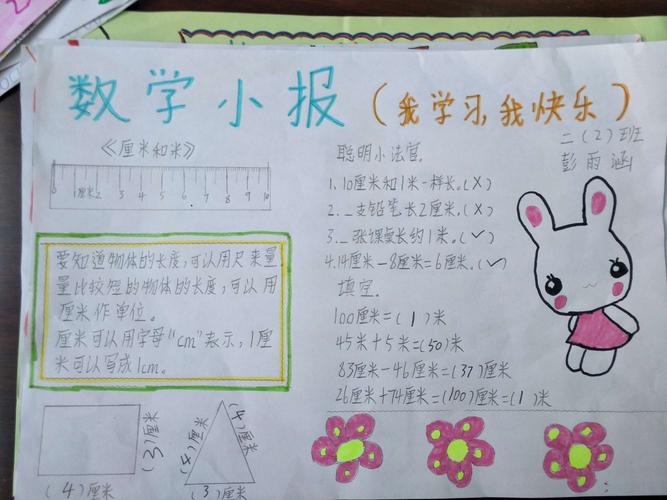 数学小报(我学习,我快乐)
二(2)班
彭雨涵
《厘米和米》
0 1厘米 2 3 4 5 6 7 8 9 10
要知道物体的长度,可以用尺来量
量比较短的物体的长度,可以用
厘米作单位。
厘米可以用字母“cm”表示,1厘
米可以写成1cm。
(3)厘米
(4)厘米
(4)厘米
(4)厘米
(3)厘米
聪明小法官。
1.10厘米和1米一样长。(X)
2.一支铅笔长2厘米。(X)
3.一张课桌长约1米。(✓)
4.14厘米-8厘米=6厘米。(✓)
填空。
100厘米=(1)米
45米+5米=(50)米
83厘米-46厘米=(37)厘米
26厘米+74厘米=(100)厘米=(1)米